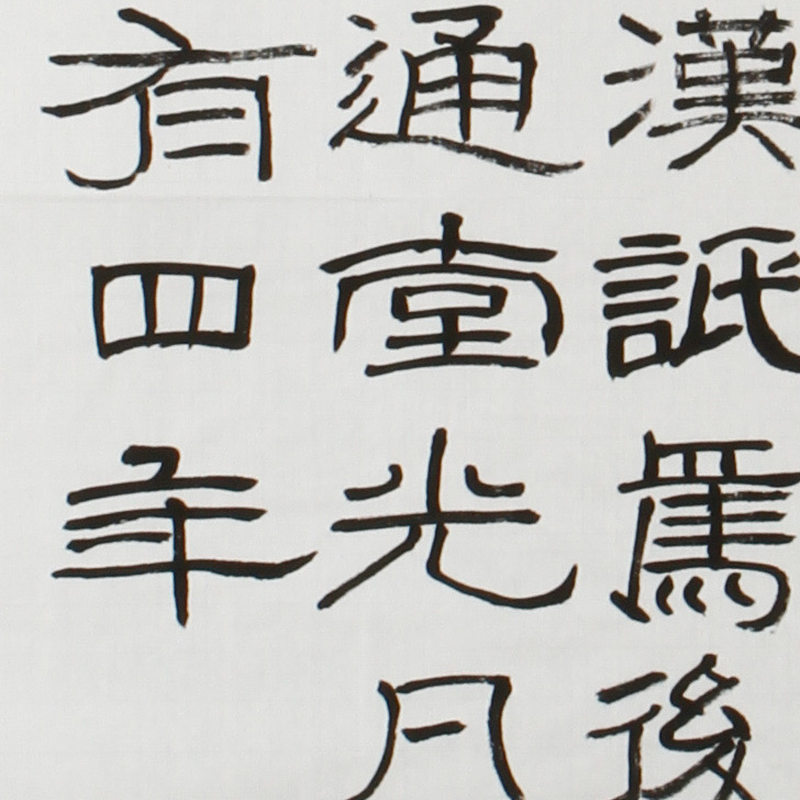 漢詆罵後
通堂光凡
有四年